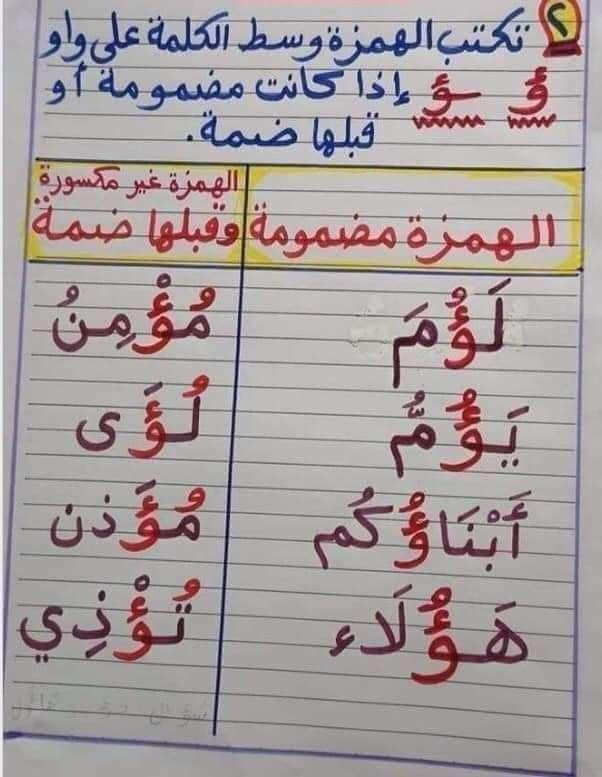 ٢ تكتب الهمزة وسط الكلمة على واو
ؤ ـؤ إذا كانت مضمومة أو
قبلها ضمة.
الهمزة مضمومة
الهمزة غير مكسورة
وقبلها ضمة
لَؤُمَ مُؤْمِنُ
يَؤُمُّ لُؤَى
أَبْنَاؤُكُم مُؤَذن
هَؤُلَاء تُؤْذِي